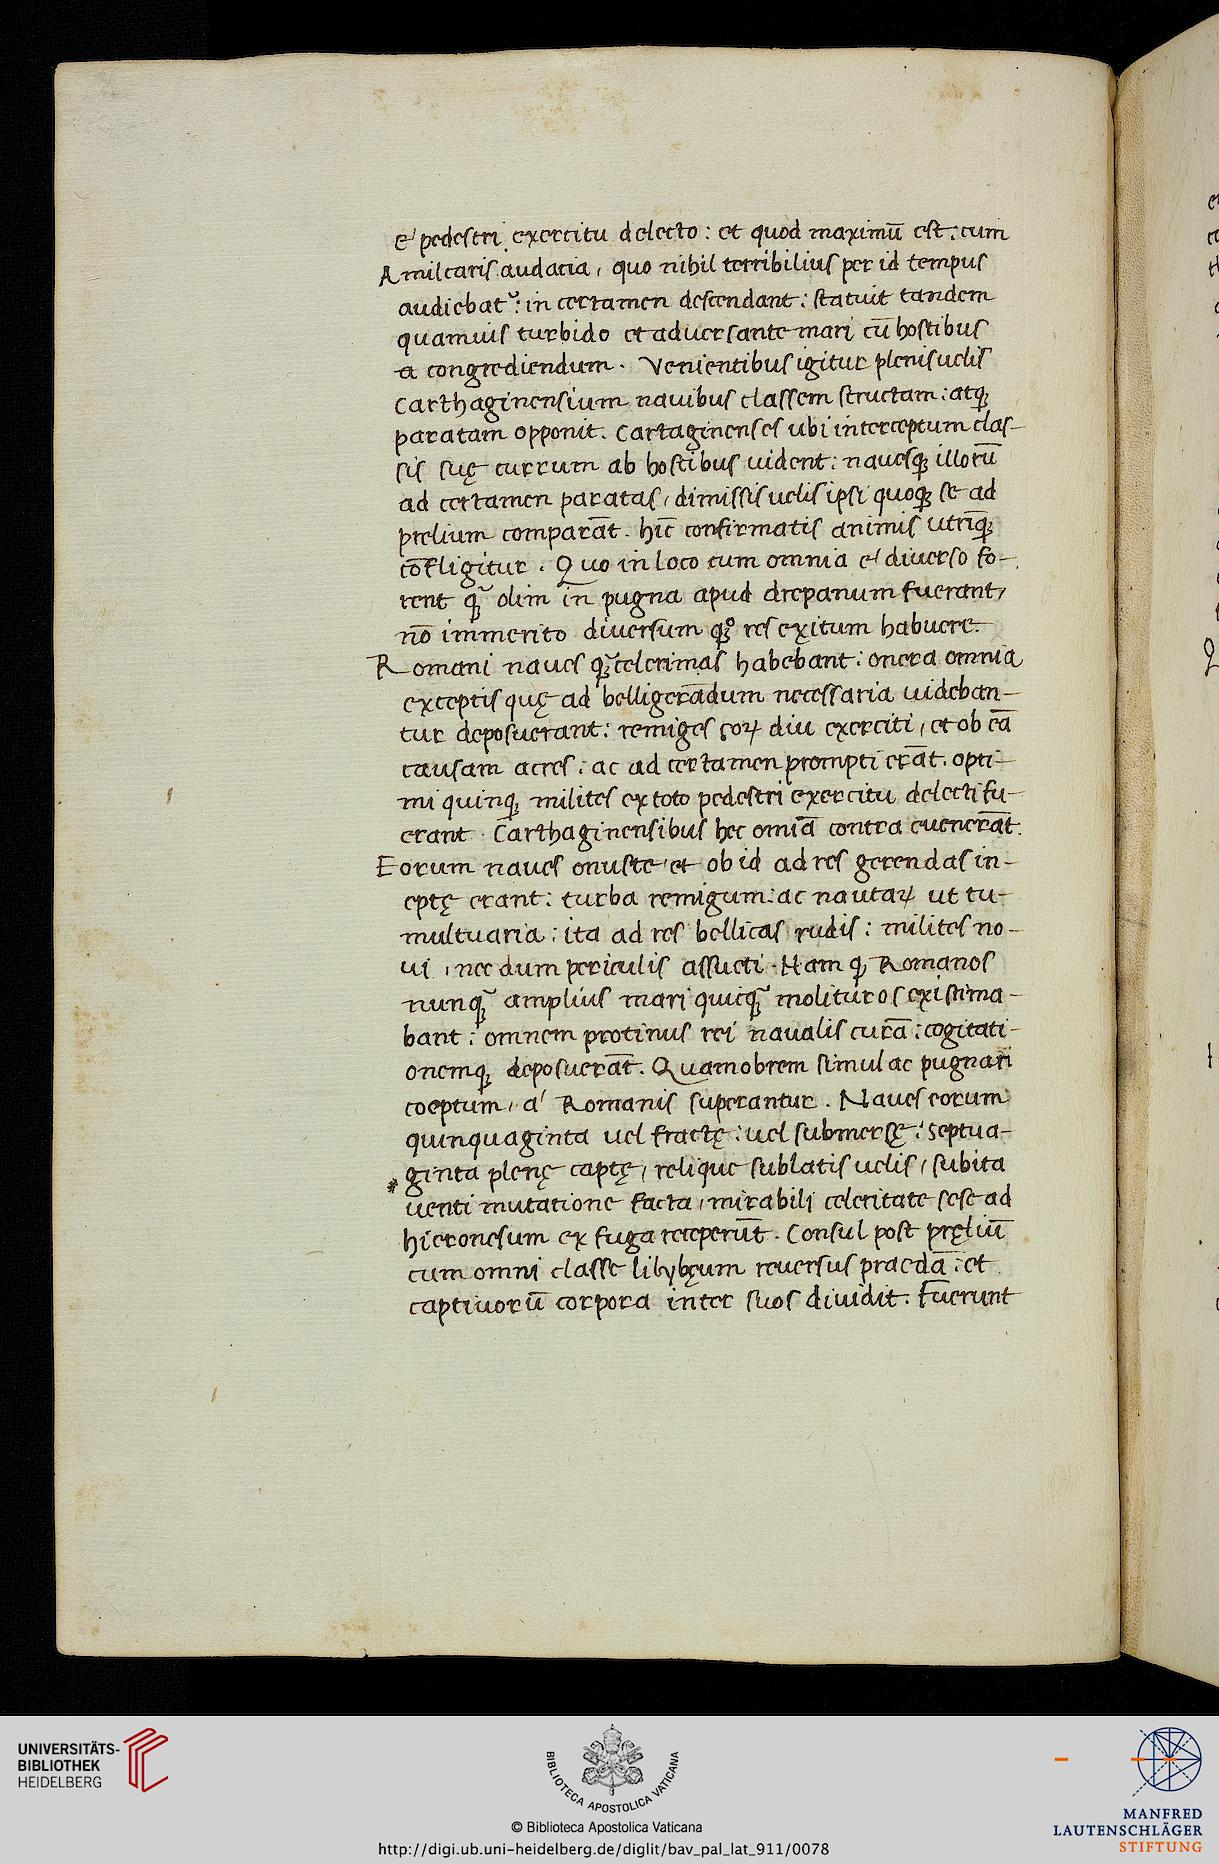 e' pedestri exercitu delecto: et quod maximū est: cum
Amilcaris audatia, quo nihil terribilius per id tempus
audiebat᷒: in certamen descendant: statuit tandem
quamuis turbido et aduersante mari cū hostibus
a congrediendum. Venientibus igitur plenis uelis
Carthaginensium nauibus classem structam: atq;
paratam opponit. Cartaginenses ubi interceptum clas-
sis suę currum ab hostibus uident: nauesq; illorū
ad certamen paratas, dimissis uelis ipsi quoq; se ad
prelium comparāt. hic confirmatis animis utrīq;
cōfligitur. Quo in loco cum omnia e' diuerso fo-
rent q̄ olim in pugna apud drepanum fuerant,
nō immerito diuersum q;° res exitum habuere.
Romani naues q;̄ celerimas habebant: onera omnia
exceptis quę ad belligerādum necessaria uideban-
tur deposuerant: remiges eoꝝ diu exerciti, et ob eā
causam acres: ac ad certamen prompti erāt. opti-
mi quinq; milites ex toto pedestri exercitu delecti fu-
erant. Carthaginensibus hec omīa contra euenerāt.
Eorum naues onuste, et ob id ad res gerendas in-
eptę erant: turba remigum: ac nautaꝝ ut tu-
multuaria: ita ad res bellicas rudis: milites no-
ui, nec dum periculis assueti. Nam q; Romanos
nunq̄ amplius mari quicq̄ molituros existima-
bant: omnem protinus rei naualis curā: cogitati-
onemq; deposuerāt. Quamobrem simul ac pugnari
coeptum, a' Romanis superantur. Naues eorum
quinquaginta uel fractę: uel submersę: septua-
ginta plenę captę, relique sublatis uelis, subita
uenti mutatione facta, mirabili celeritate sese ad
hieronesum ex fuga receperūt. Consul post pręliū
cum omni classe libybęum reuersus praedā: et
captiuorū corpora inter suos diuidit. Fuerunt
UNIVERSITÄTS-
BIBLIOTHEK
HEIDELBERG
BIBLIOTECA APOSTOLICA VATICANA
© Biblioteca Apostolica Vaticana
http://digi.ub.uni-heidelberg.de/diglit/bav_pal_lat_911/0078
MANFRED
LAUTENSCHLÄGER
STIFTUNG